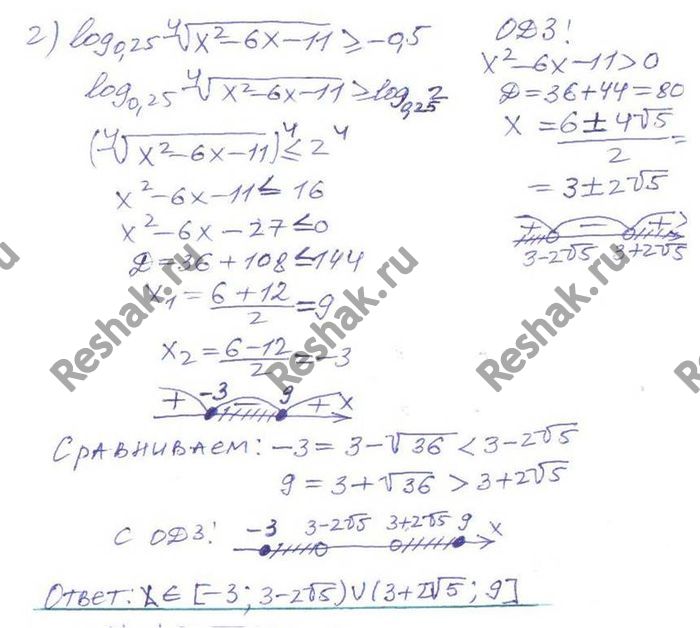 2) log₀,₂₅ ⁴√(x²-6x-11) ≥ -0,5
log₀,₂₅ ⁴√(x²-6x-11) ≥ log₀,₂₅ 2
(⁴√(x²-6x-11))⁴ ≤ 2⁴
x²-6x-11 ≤ 16
x²-6x-27 ≤ 0
D = 36+108 ≤ 144
x₁ = (6+12)/2 = 9
x₂ = (6-12)/2 = -3
+ -3 - 9 + x
ОДЗ!
x²-6x-11>0
D = 36+44 = 80
x = (6±4√5)/2 =
= 3±2√5
+ - +
3-2√5 3+2√5
Сравниваем: -3 = 3-√36 < 3-2√5
9 = 3+√36 > 3+2√5
С ОДЗ! -3 3-2√5 3+2√5 9 x
Ответ: x ∈ [-3; 3-2√5) ∪ (3+2√5; 9]
Reshak.ru
Reshak.ru
Reshak.ru